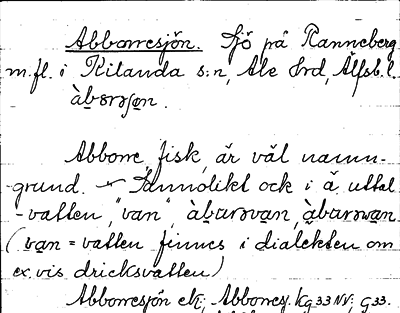 Abborresjön. Sjö på Ranneberg
m.fl. i Kilanda s:n, Ale hrd, Älfsb. l.
àbɷrəʃøn.
Abborre, fisk, är väl namn-
grund. Sannolikt ock i å. uttal
-vatten, "van", àbɷrəvan, àbɷrəvan
(van = vatten finnes i dialekten om
ex.vis dricksvatten)
Abborresjön ek; Abborresj. Kg 33 NV; G 33.